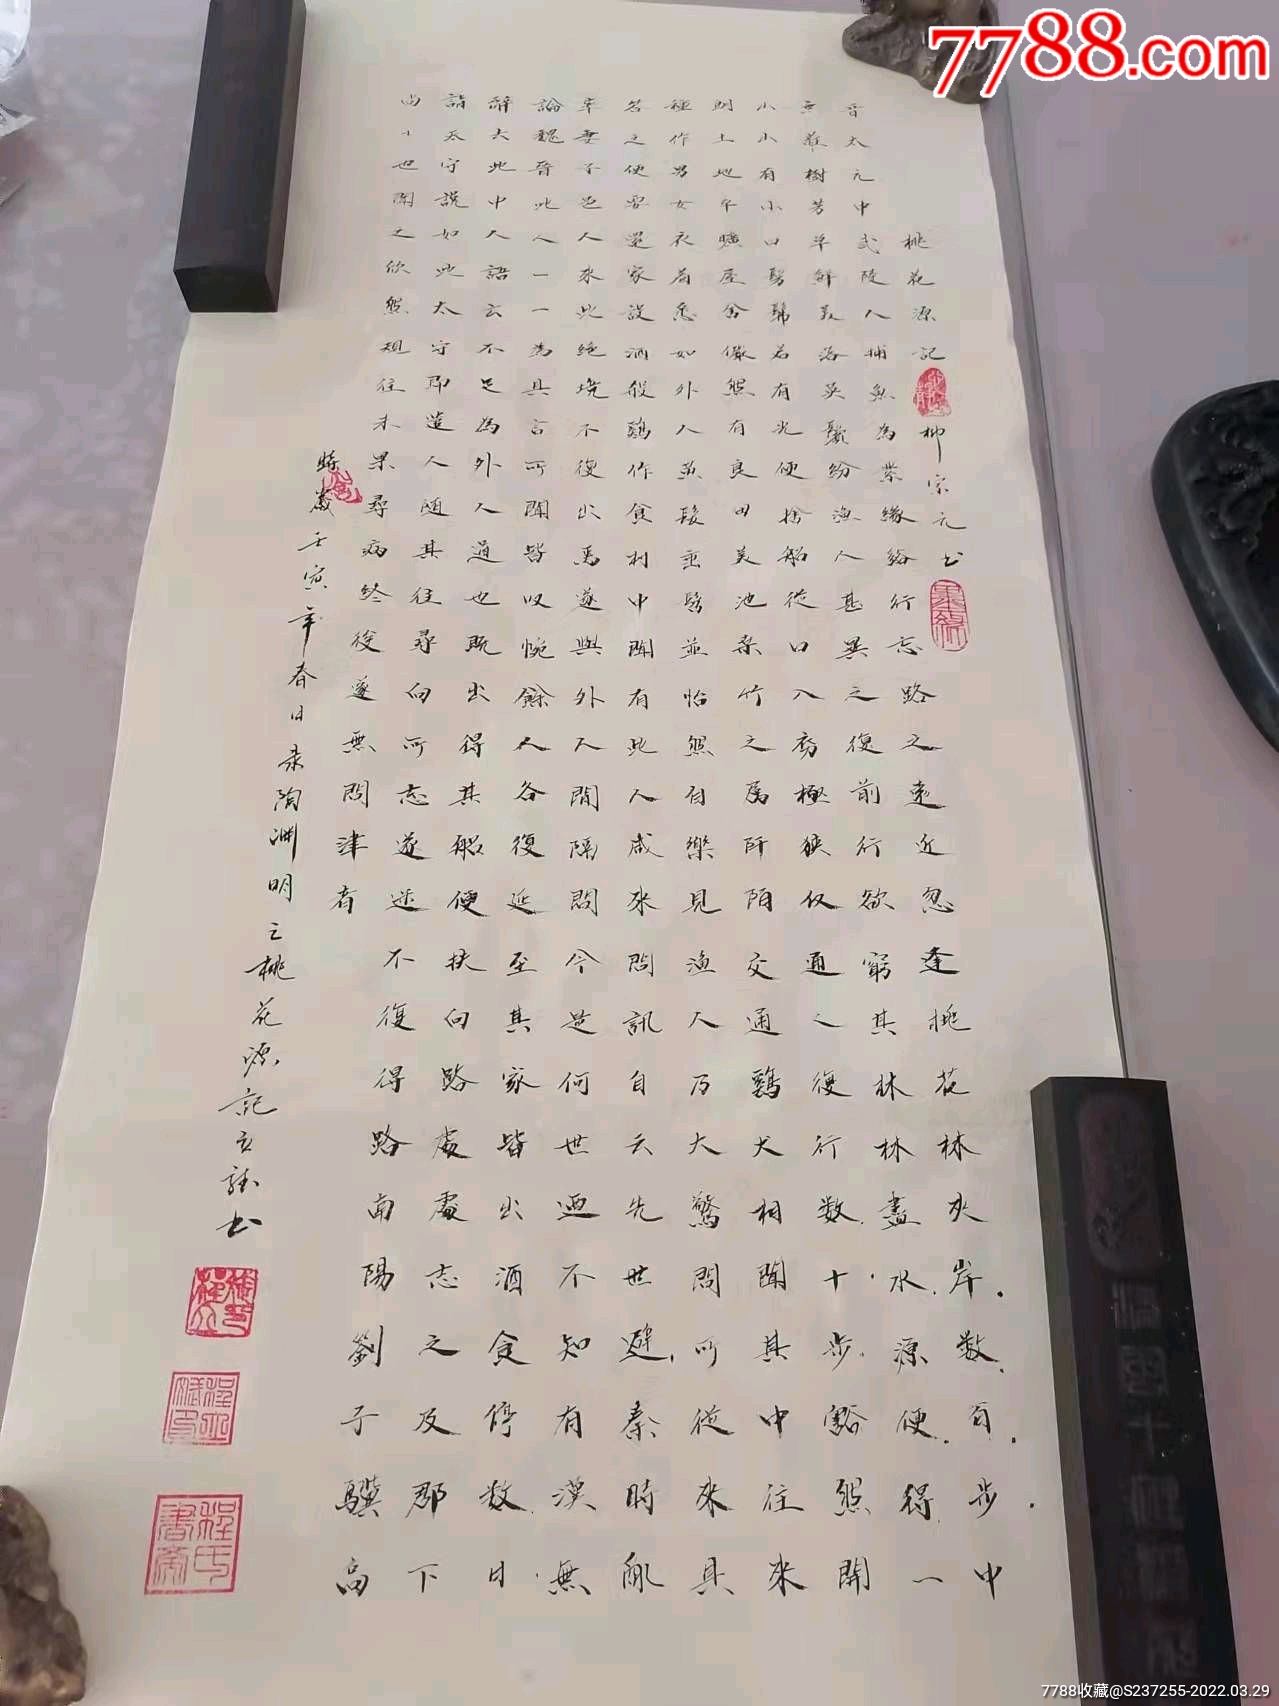 桃花源記 柳宗元书
晉太元中武陵人捕魚為業緣谿行忘路之遠近忽逢桃花林夾岸数百步中
無雜樹芳草鮮美落英繽紛漁人甚異之復前行欲窮其林林盡水源便得一
山山有小口髣髴若有光便捨船從口入初極狹仅通人復行数十步豁然開
朗土地平曠屋舍儼然有良田美池桑竹之属阡陌交通鷄犬相聞其中往來
種作男女衣着悉如外人黄髮垂髫並怡然自樂見漁人乃大驚問所從來具
答之便要還家設酒殺鷄作食村中聞有此人咸來問訊自云先世避秦時亂
率妻子邑人來此絕境不復出焉遂與外人間隔問今是何世迺不知有漢無
論魏晉此人一一為具言所聞皆叹惋餘人各復延至其家皆出酒食停数日
辭去此中人語云不足為外人道也既出得其船便扶向路處處志之及郡下
詣太守說如此太守即遣人随其往尋向所志遂迷不復得路南陽劉子驥高
尚士也聞之欣然規往未果尋病終後遂無問津者
時歲壬寅年春日录陶渊明之桃花源記立斌书
程氏書斋
7788.com
7788收藏@S237255-2022.03.29